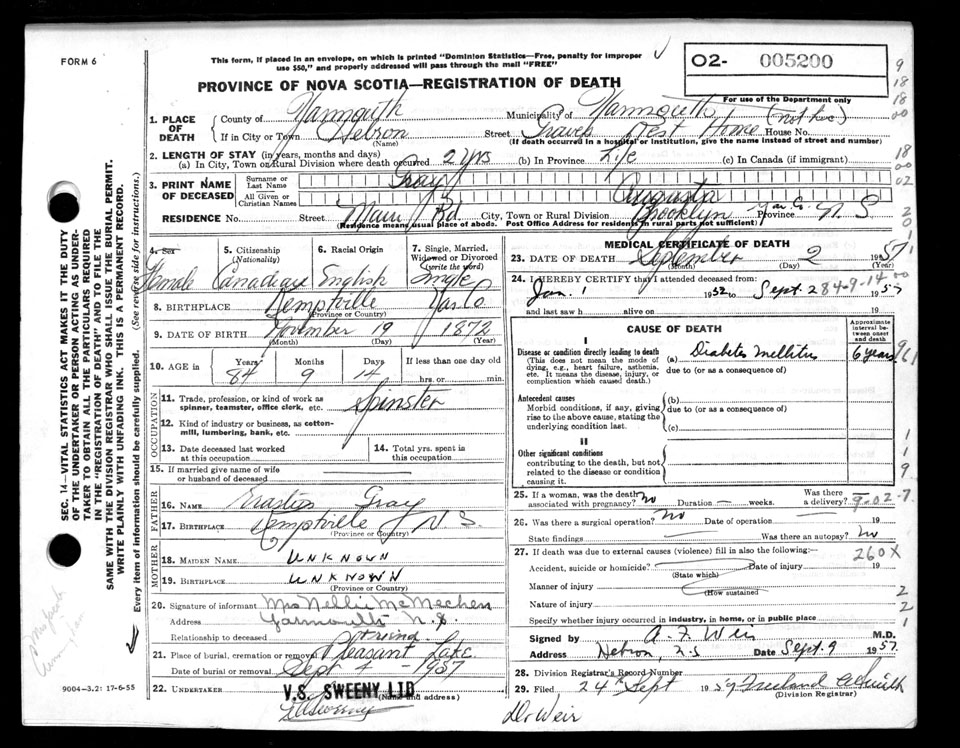 FORM 6
This form, if placed in an envelope, on which is printed "Dominion Statistics—Free, penalty for improper
use $50," and properly addressed will pass through the mail "FREE"
02- 005200
PROVINCE OF NOVA SCOTIA—REGISTRATION OF DEATH
For use of the Department only
1. PLACE OF DEATH
County of Yarmouth Municipality of Yarmouth
If in City or Town Hebron (Name) Street Rest Home House No.
(If death occurred in a hospital or institution, give the name instead of street and number)
2. LENGTH OF STAY (in years, months and days)
(a) In City, Town or Rural Division where death occurred 2 yrs (b) In Province Life (c) In Canada (if immigrant)
3. PRINT NAME OF DECEASED
Surname or Last Name Gray
All Given or Christian Names Augusta
RESIDENCE No. Street Main Rd. City, Town or Rural Division Brooklyn Yar. Co. Province N. S
(Residence means usual place of abode. Post Office Address for residents in rural parts not sufficient)
4. Sex Female
5. Citizenship (Nationality) Canadian
6. Racial Origin English
7. Single, Married, Widowed or Divorced (write the word) Single
8. BIRTHPLACE Kemptville Yar. Co
(Province or Country)
9. DATE OF BIRTH November 19 1872
(Month) (Day) (Year)
10. AGE in Years 84 Months 9 Days 14 If less than one day old hrs. or min.
OCCUPATION
11. Trade, profession, or kind of work as spinner, teamster, office clerk, etc. Spinster
12. Kind of industry or business, as cotton-mill, lumbering, bank, etc.
13. Date deceased last worked at this occupation
14. Total yrs. spent in this occupation
15. If married give name of wife or husband of deceased
FATHER
16. NAME Gray
17. BIRTHPLACE Kemptville N. S.
(Province or Country)
MOTHER
18. MAIDEN NAME UNKNOWN
19. BIRTHPLACE UNKNOWN
(Province or Country)
20. Signature of informant Mrs Nellie McMechen
Address Yarmouth N. S.
Relationship to deceased friend
21. Place of burial, cremation or removal Pleasant Lake
Date of burial or removal Sept 4 - 1957
22. UNDERTAKER V. S. SWEENY LTD
(Name and address)
9004—3.2: 17-6-55
SEC. 14—VITAL STATISTICS ACT MAKES IT THE DUTY
OF THE UNDERTAKER OR PERSON ACTING AS UNDER-
TAKER TO OBTAIN ALL THE PARTICULARS REQUIRED
IN THE "REGISTRATION OF DEATH" AND TO FILE THE
SAME WITH THE DIVISION REGISTRAR WHO SHALL ISSUE THE BURIAL PERMIT.
WRITE PLAINLY WITH UNFADING INK. THIS IS A PERMANENT RECORD.
Every item of information should be carefully supplied. (See reverse side for instructions.)
MEDICAL CERTIFICATE OF DEATH
23. DATE OF DEATH September 2 1957
(Month) (Day) (Year)
24. I HEREBY CERTIFY that I attended deceased from:
Jan. 1 1952 to Sept. 2 84-9-14 1957
and last saw h alive on 19
CAUSE OF DEATH
Approximate interval between onset and death
I
Disease or condition directly leading to death (a) Diabetes Mellitus 6 years
(This does not mean the mode of dying, e.g., heart failure, asthenia, etc. It means the disease, injury, or complication which caused death.)
due to (or as a consequence of)
Antecedent causes (b)
Morbid conditions, if any, giving rise to the above cause, stating the underlying condition last.
due to (or as a consequence of)
(c)
II
Other significant conditions
contributing to the death, but not related to the disease or condition causing it.
25. If a woman, was the death associated with pregnancy? no Duration — weeks. Was there a delivery? 9-02-7
26. Was there a surgical operation? no Date of operation 19
State findings Was there an autopsy? no
27. If death was due to external causes (violence) fill in also the following:— 260X
Accident, suicide or homicide? (State which) Date of injury 19
Manner of injury (How sustained)
Nature of injury
Specify whether injury occurred in industry, in home, or in public place
Signed by A. F. Weir M.D.
Address Hebron, N.S. Date Sept. 9 1957
28. Division Registrar's Record Number
29. Filed, 24th Sept 1957
(Division Registrar)
Dr Weir